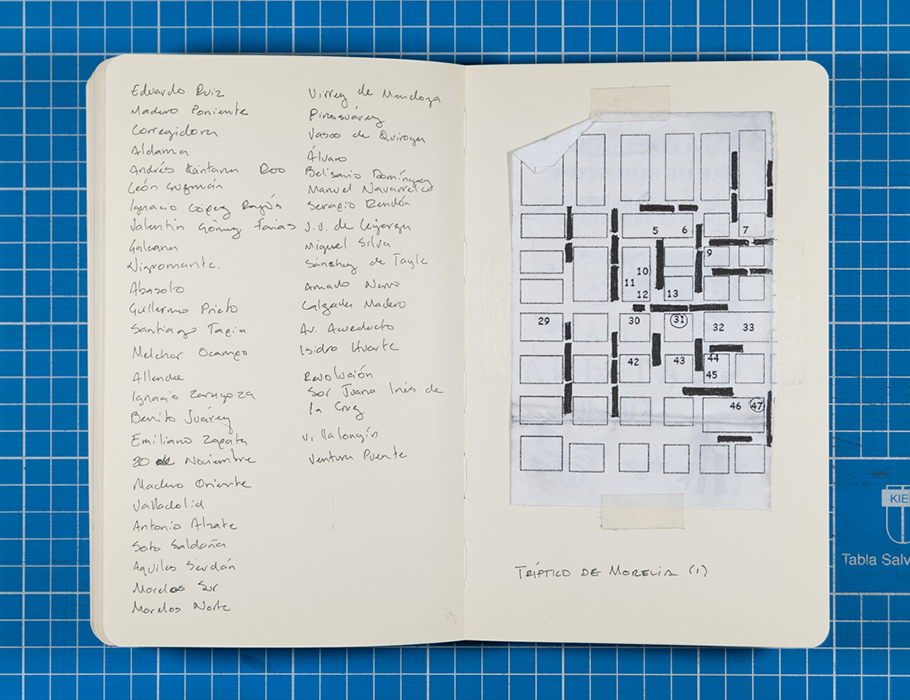 Eduardo Ruiz
Madero Poniente
Corregidora
Aldama
Andrés Quintana Roo
León Guzmán
Ignacio López Rayón
Valentín Gómez Farias
Galeana
Nigromante.
Abasolo
Guillermo Prieto
Santiago Tapia
Melchor Ocampo
Allende
Ignacio Zaragoza
Benito Juárez
Emiliano Zapata
20 de Noviembre
Madero Oriente
Valladolid
Antonio Alzate
Soto Saldaña
Aquiles Serdán
Morelos Sur
Morelos Norte
Virrey de Mendoza
Pinosuárez
Vasco de Quiroga
Álvaro
Belisario Domínguez
Manuel Navarrete
Serapio Rendón
J.J. de Lejarza
Miguel Silva
Sánchez de Tagle
Amado Nervo
Calzada Madero
Av. Acueducto
Isidro Huarte
Revolución
Sor Juana Inés de
la Cruz
Villalongín
Ventura Puente
5 6 7
9
10
11
12 13
29 30 31 32 33
42 43 44
45
46 47
TRÍPTICO DE MORELIA (1)
KIE
Tabla Salv